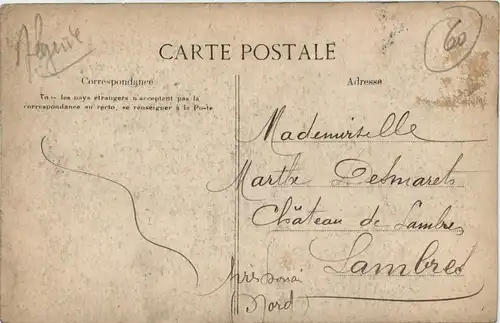 Algérie
60
CARTE POSTALE
Correspondance
Adresse
Tous les pays étrangers n'acceptent pas la
correspondance au recto, se renseigner à la Poste
Mademoiselle
Marthe Desmarets
Château de Lambres
Lambres
près Douai
(Nord)